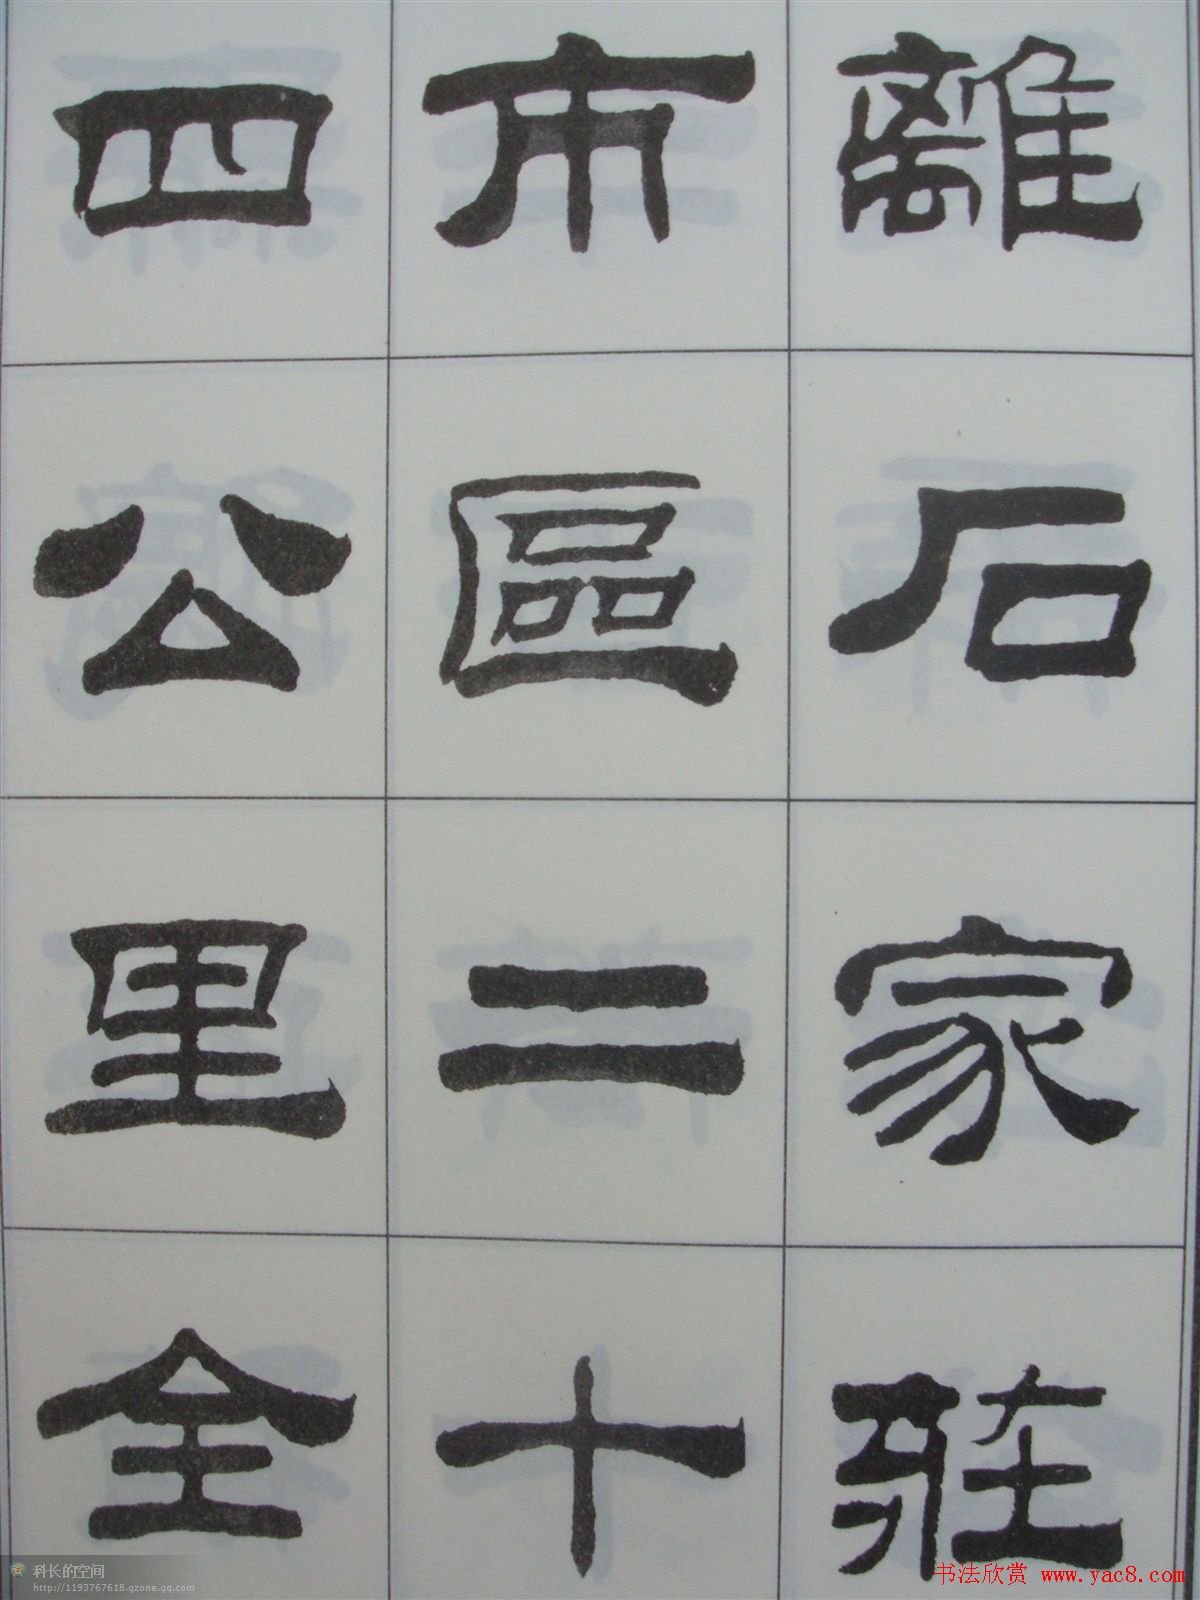 離石家莊
市區二十
四公里全
科长的空间
http://1193767618.qzone.qq.com
书法欣赏 www.yac8.com